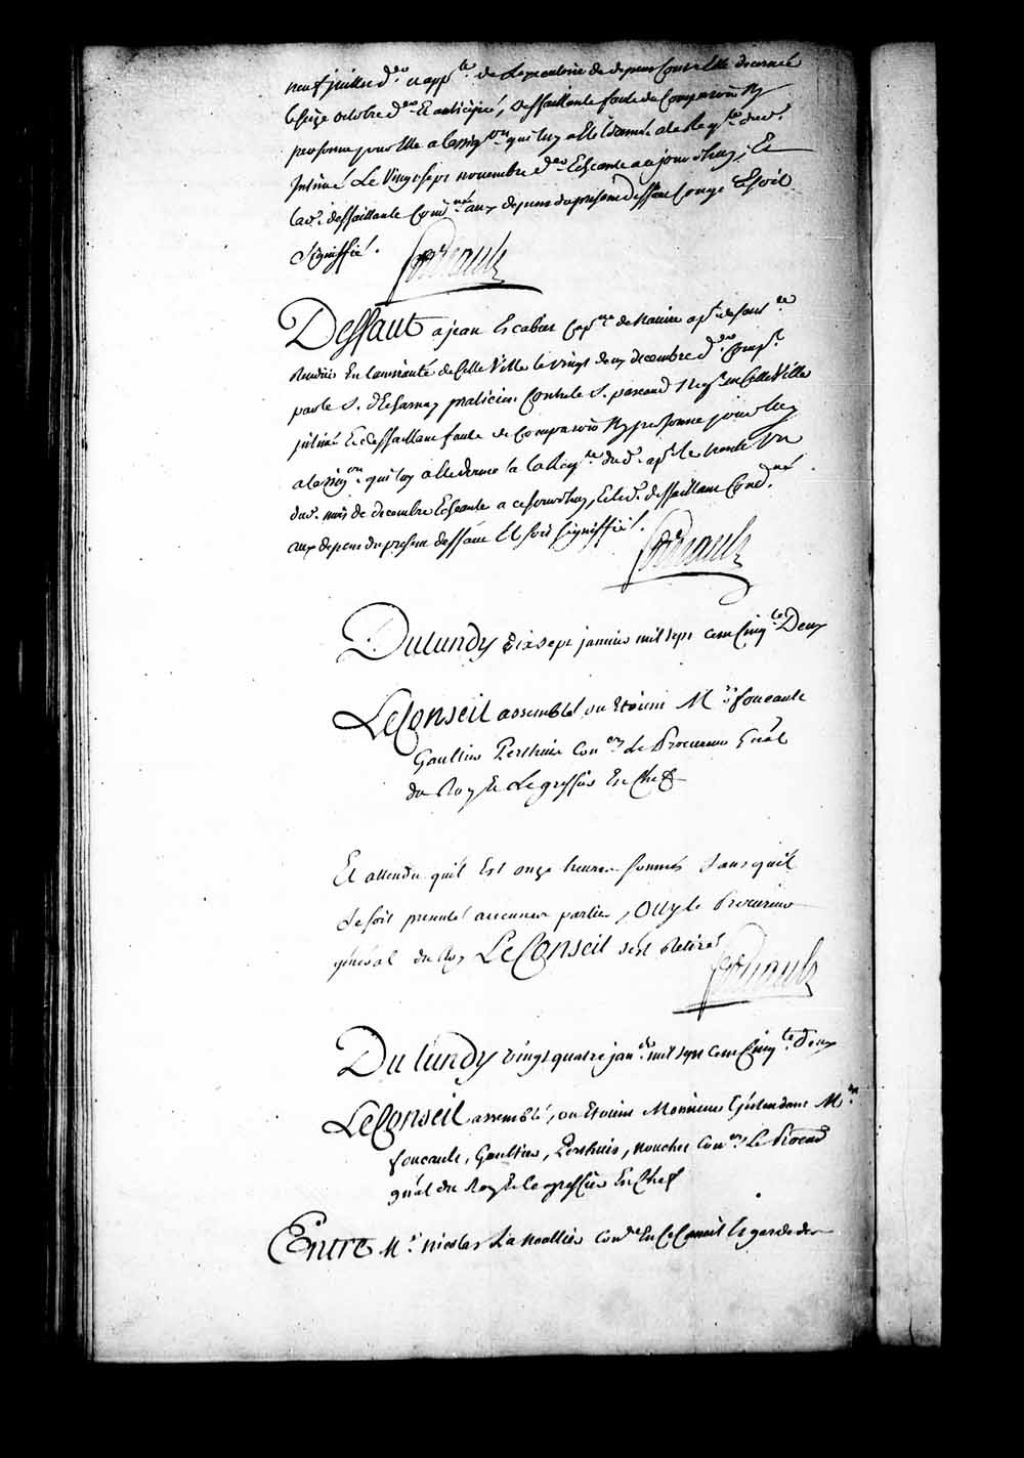 neuf juillet d.er et app.te de de depens Contrelle decerné
le seize octobre d.er Et anticipée, Deffaillante faute de Comparoir Ny
personne pour Elle a lassig.on qui luy a Eté donnée a la Req.te dud.
Intimé Le Vingt sept novembre d.er Echeante a ajourdhuy, Et
lad.e deffaillante Cond.née aux depens du present deffaut Congé Et soit
Signiffié.
Deffaut a jean Escabier Cap.ne de Navire ap.t de sent.ce
Rendüe En lamirauté de Cette Ville le vingt deux decembre d.er Comp.t
par le S. dEcharnay praticien Contre le S. pascaud Neg.t en Cette Ville
jntimé Et deffaillant faute de Comparoir Ny personne pour luy
a lassig.on qui luy a Eté donnée a la Req.te dud. ap.t le trente Un
dud. mois de decembre Echeante a cejourdhuy, Et led. deffaillant Cond.né
aux depens du present deffaut Et soit Signiffié.
Du Lundy dix sept janvier mil sept cent Cinq.te Deux
Le Conseil assemblé, ou Etoient M.rs foucault
Gaultier Perthuis Con.ers Le Procureur Genal
du Roy Et Le greffier En Chef
Et attendu qu'il Est onze heures sonnées Sans qu'il
se soit presenté aucunes parties, Ouy le Procureur
général du Roy Le Conseil s'est Retiré
Du lundy vingt quatre jan.er mil sept cent Cinq.te deux
Le Conseil assemblé, ou Etoient Monsieur l'Intendant M.rs
foucault, Gaultier, Perthuis, nouchet Con.ers Le Procur
gnal du Roy Et le greffier En Chef
Entre M.e nicolas La noullier Con.er En Ce Conseil Et garde des